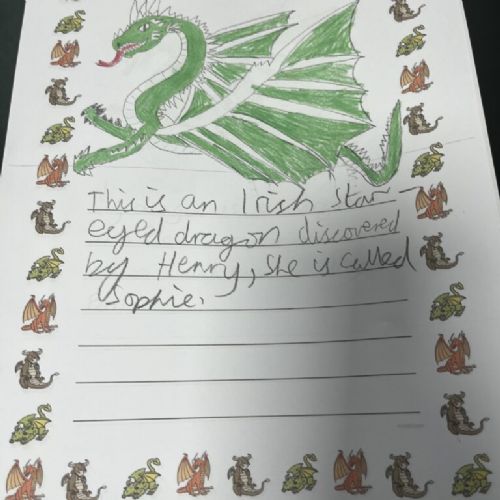 This is an Irish Star-
eyed dragon discovered
by Henry, she is called
Sophie.